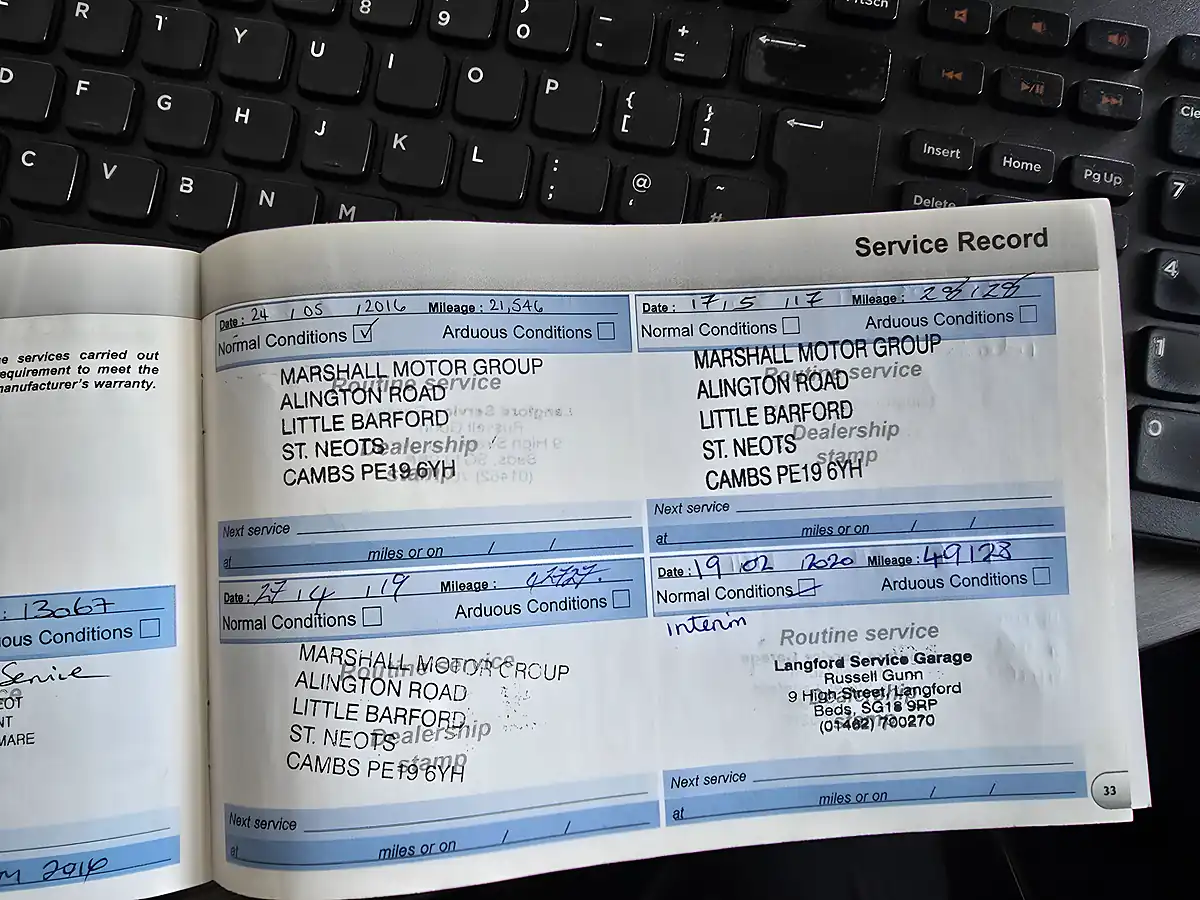 R T Y U I 8 9 ) 0 - - + =
D F G H J K O P { [ } ]
C V B N M L : ; @ ' ~ #
PrtScn
Insert Home Pg Up
Delete
7
4
1
0
Service Record
e services carried out
equirement to meet the
manufacturer's warranty.
: 13067
ous Conditions
Service
EOT
NT
MARE
2016
Date : 24 / 05 / 2016 Mileage : 21,546
Normal Conditions ✓ Arduous Conditions
Routine service
Dealership
stamp
MARSHALL MOTOR GROUP
ALINGTON ROAD
LITTLE BARFORD
ST. NEOTS
CAMBS PE19 6YH
Next service
at miles or on / /
Date : 17 / 5 / 17 Mileage : 28,128
Normal Conditions Arduous Conditions
Routine service
Dealership
stamp
MARSHALL MOTOR GROUP
ALINGTON ROAD
LITTLE BARFORD
ST. NEOTS
CAMBS PE19 6YH
Next service
at miles or on / /
Date : 27 / 4 / 19 Mileage : 42727.
Normal Conditions Arduous Conditions
Routine service
Dealership
stamp
MARSHALL MOTOR GROUP
ALINGTON ROAD
LITTLE BARFORD
ST. NEOTS
CAMBS PE19 6YH
Next service
at miles or on / /
Date : 19 / 02 / 2020 Mileage : 49128
Normal Conditions Arduous Conditions
interim
Routine service
Langford Service Garage
Russell Gunn
9 High Street, Langford
Beds, SG18 9RP
(01462) 700270
Next service
at miles or on / /
33